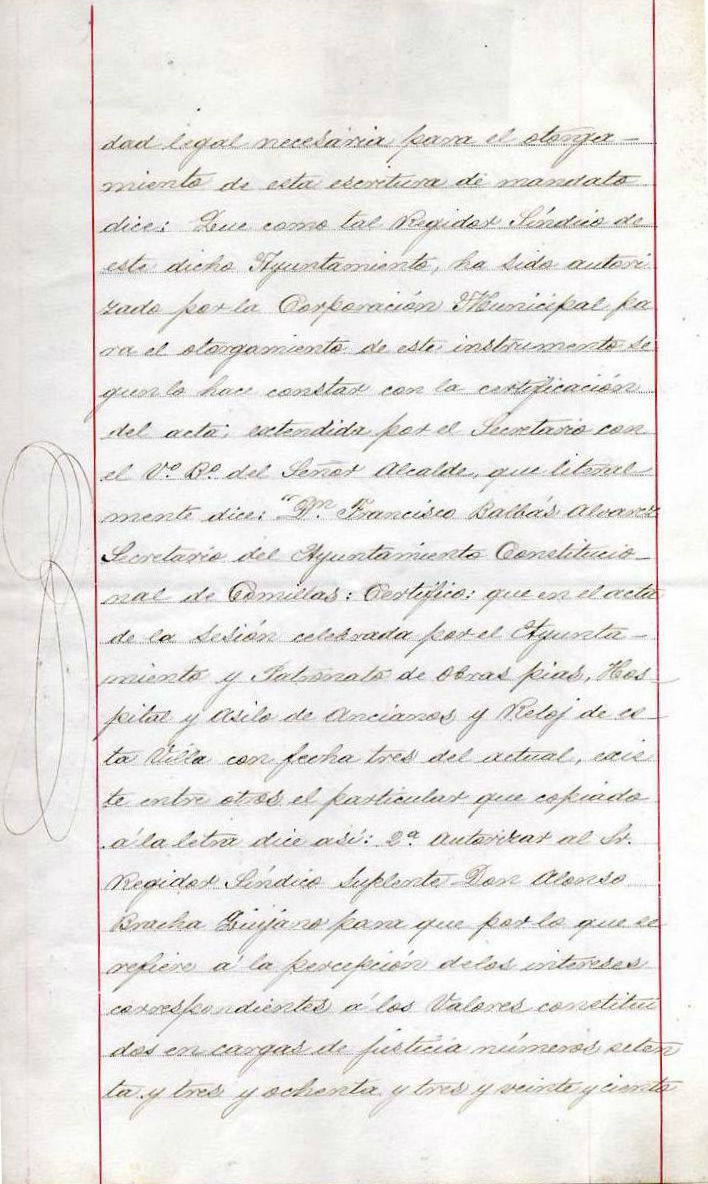 dad legal necesaria para el otorga-
miento de esta escritura de mandato
dice: Que como tal Regidor Síndico de
este dicho Ayuntamiento, ha sido autori
zado por la Corporación Municipal pa
ra el otorgamiento de este instrumento se
gun lo hace constar con la certificación
del acta, extendida por el Secretario con
el Vº Bº del Señor Alcalde, que literal-
mente dice: "Dⁿ Francisco Balbás Alvarez
Secretario del Ayuntamiento Constitucio-
nal de Comillas: Certifico: que en el acta
de la sesión celebrada por el Ayunta-
miento y Patronato de Obras pias, Hos-
pital y Asilo de Ancianos y Reloj de es-
ta Villa con fecha tres del actual, exis
te entre otros el particular que copiado
á la letra dice así: 2ª autorizar al Sr.
Regidor Síndico Suplente Don Alonso
Bracha Quijano para que por lo que se
refiere á la percepción de los intereses
correspondientes á los Valores constitui
dos en cargas de justicia números seten
ta y tres y ochenta y tres y veinte y ciento